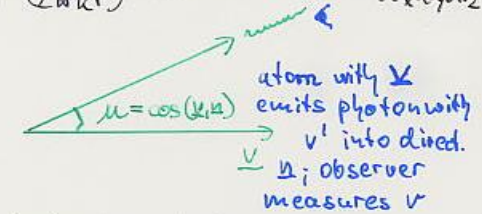 μ = cos(v,n)
atom with v
emits photon with
ν' into direct.
n; observer
measures ν
v